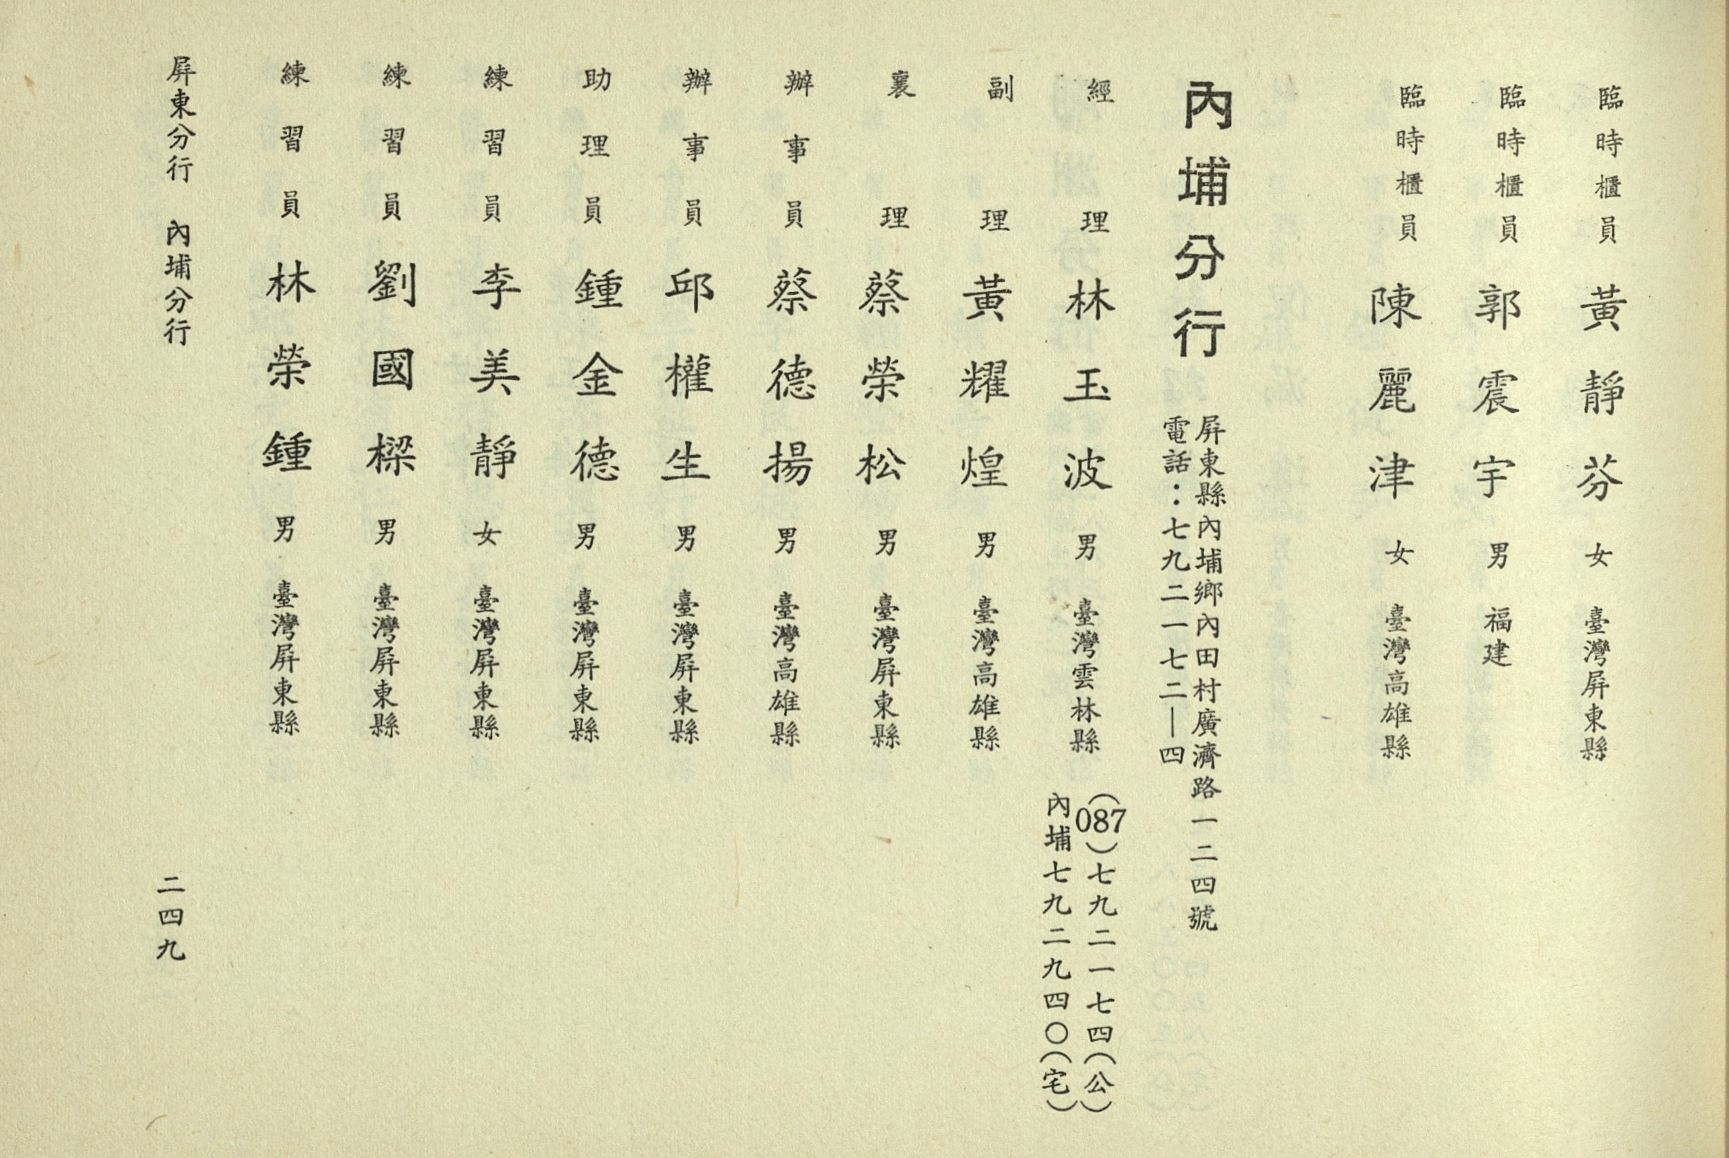 臨時櫃員 黃靜芬 女 臺灣屏東縣
臨時櫃員 郭震宇 男 福建
臨時櫃員 陳麗津 女 臺灣高雄縣
內埔分行
屏東縣內埔鄉內田村廣濟路一二四號
電話：七九二一七二—四
經理 林玉波 男 臺灣雲林縣
(087)七九二一七四(公)
內埔七九二九四〇(宅)
副理 黃耀煌 男 臺灣高雄縣
襄理 蔡榮松 男 臺灣屏東縣
辦事員 蔡德揚 男 臺灣高雄縣
辦事員 邱權生 男 臺灣屏東縣
助理員 鍾金德 男 臺灣屏東縣
練習員 李美靜 女 臺灣屏東縣
練習員 劉國樑 男 臺灣屏東縣
練習員 林榮鍾 男 臺灣屏東縣
屏東分行 內埔分行
二四九